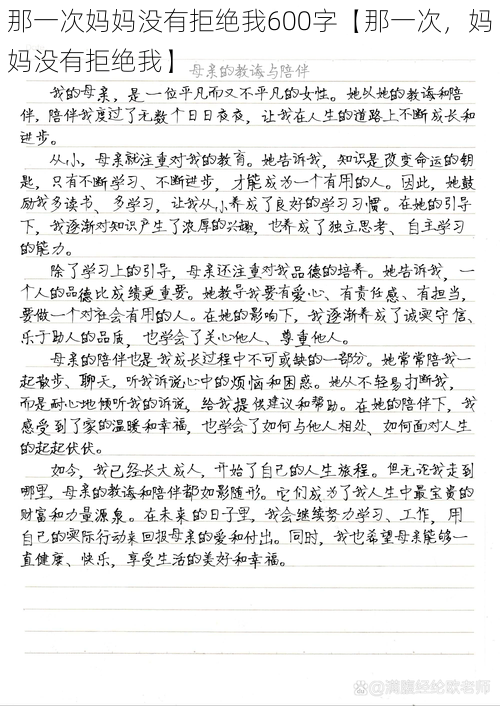 那一次妈妈没有拒绝我600字【那一次，妈
妈没有拒绝我】
母亲的教诲与陪伴
我的母亲，是一位平凡而又不平凡的女性。她以她的教诲和陪
伴，陪伴我度过了无数个日日夜夜，让我在人生的道路上不断成长和
进步。
从小，母亲就注重对我的教育。她告诉我，知识是改变命运的钥
匙，只有不断学习、不断进步，才能成为一个有用的人。因此，她鼓
励我多读书、多学习，让我从小养成了良好的学习习惯。在她的引导
下，我逐渐对知识产生了浓厚的兴趣，也养成了独立思考、自主学习
的能力。
除了学习上的引导，母亲还注重对我品德的培养。她告诉我，一
个人的品德比成绩更重要。她教导我要有爱心、有责任感、有担当，
要做一个对社会有用的人。在她的影响下，我逐渐养成了诚实守信、
乐于助人的品质，也学会了关心他人、尊重他人。
母亲的陪伴也是我成长过程中不可或缺的一部分。她常常陪我一
起散步、聊天，听我诉说心中的烦恼和困惑。她从不轻易打断我，
而是耐心地倾听我的诉说，给我提供建议和帮助。在她的陪伴下，我
感受到了家的温暖和幸福，也学会了如何与他人相处、如何面对人生
的起起伏伏。
如今，我已经长大成人，开始了自己的人生旅程。但无论我走到
哪里，母亲的教诲和陪伴都如影随形。它们成为了我人生中最宝贵的
财富和力量源泉。在未来的日子里，我会继续努力学习、工作，用
自己的实际行动来回报母亲的爱和付出。同时，我也希望母亲能够一
直健康、快乐，享受生活的美好和幸福。
满腹经纶欧老师